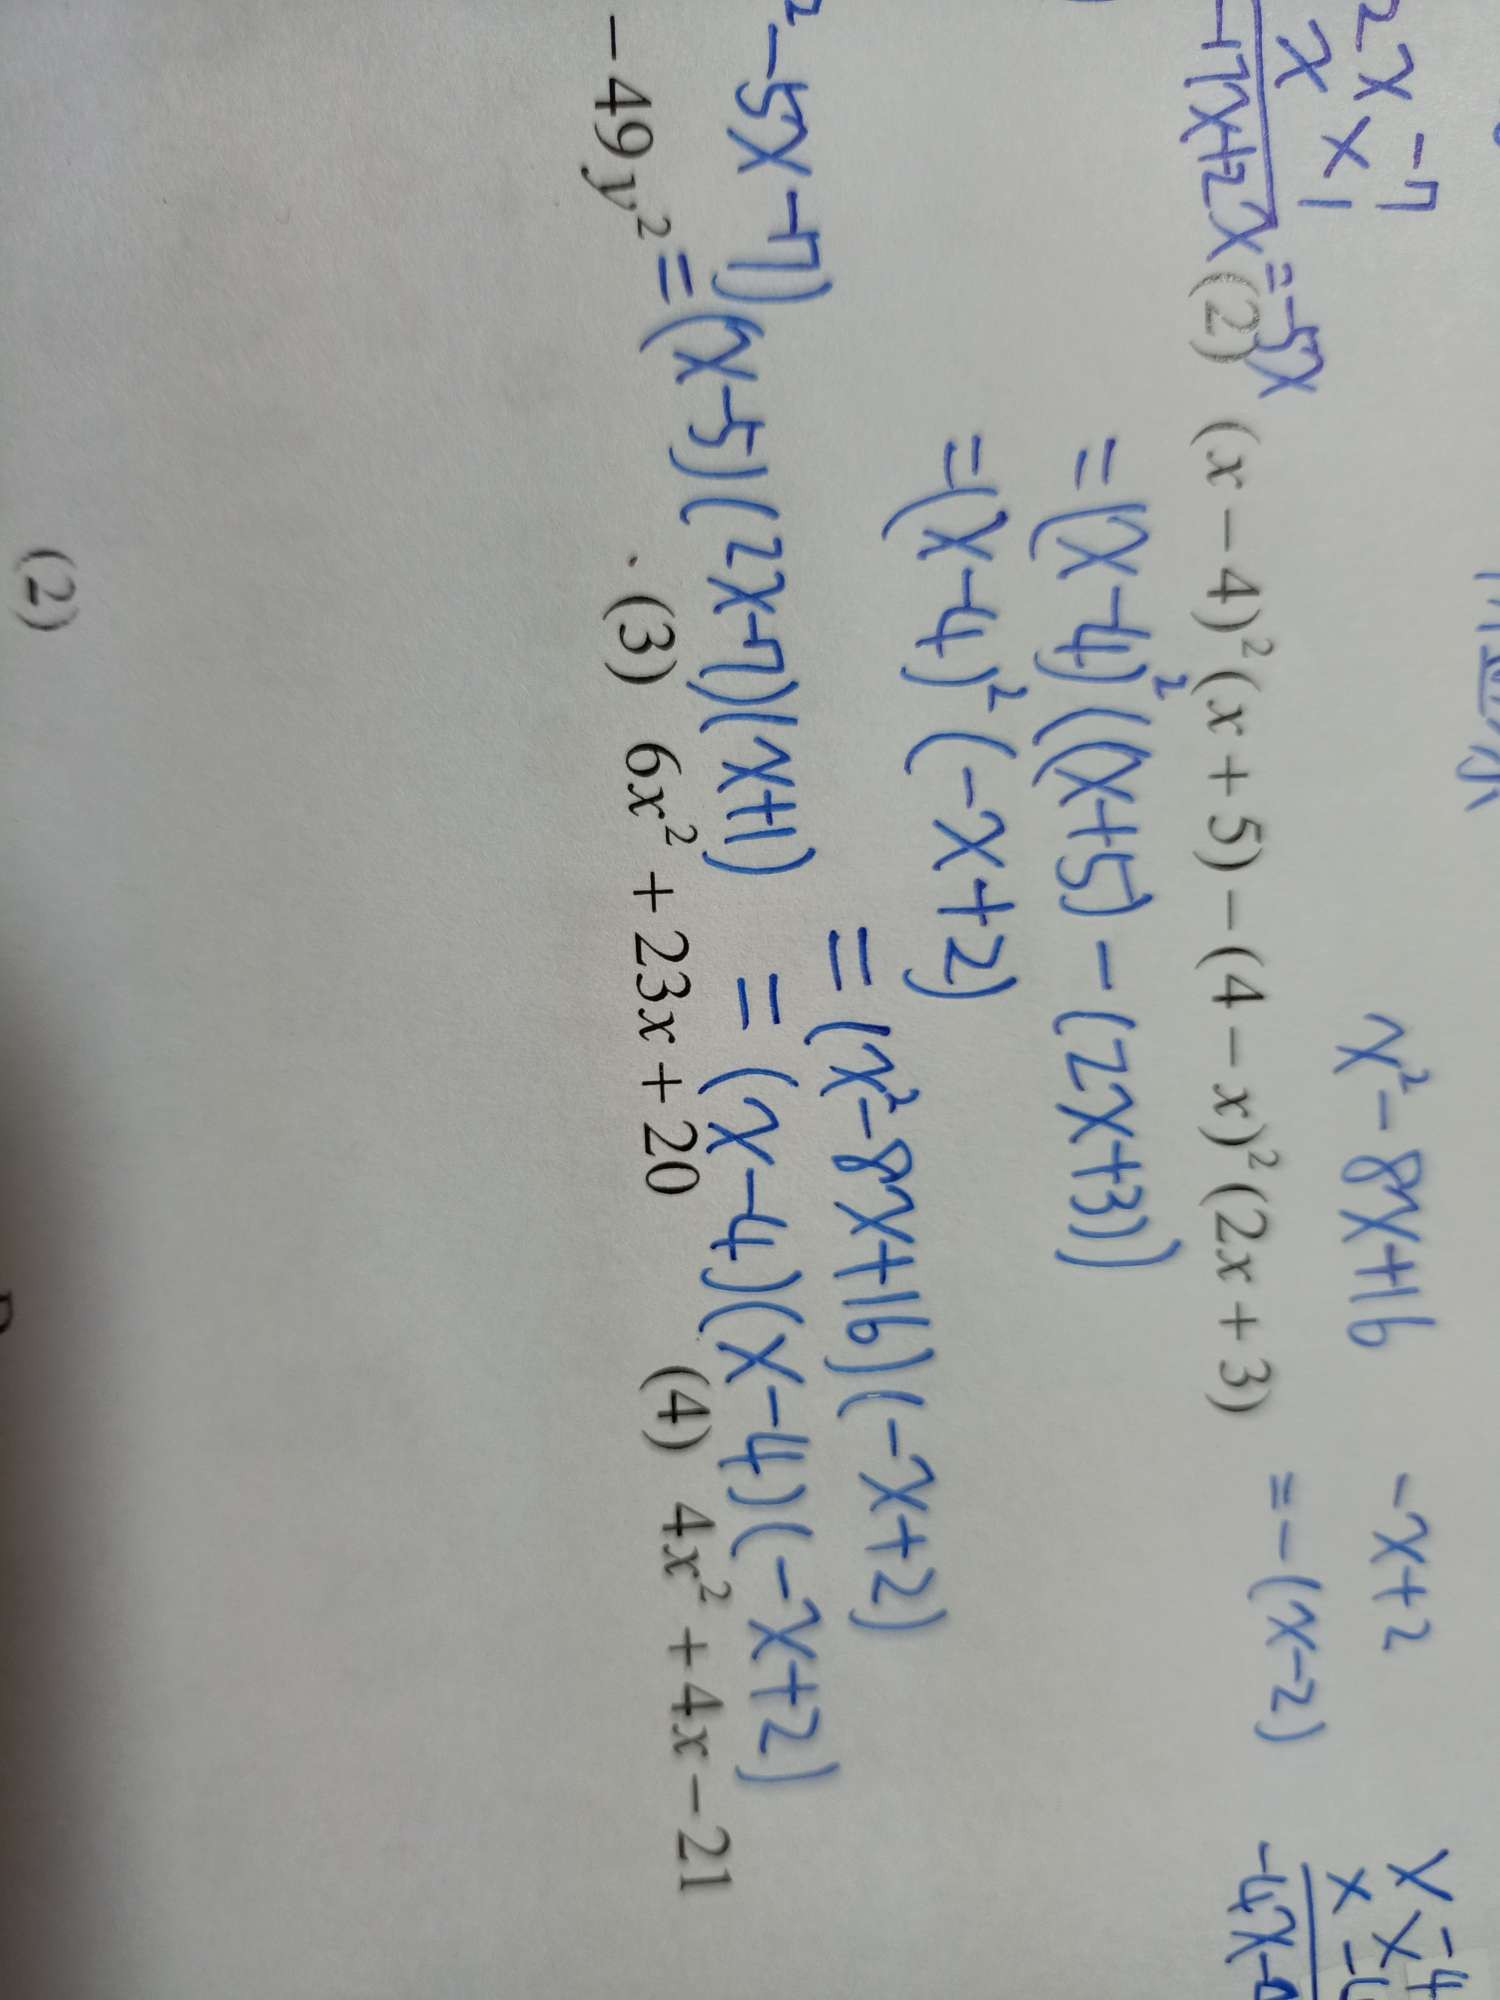 2x -7
x 1
-7x+2x=-5x
x²-8x+16
-x+2
=-(x-2)
x -4
x -4
(2) (x-4)²(x+5)-(4-x)²(2x+3)
=(x-4)²((x+5)-(2x+3))
=(x-4)²(-x+2)
=(x²-8x+16)(-x+2)
=(x-4)(x-4)(-x+2)
²-5x-7)
=(x-5)(2x-7)(x+1)
-49y²
(3) 6x²+23x+20
(4) 4x²+4x-21
(2)